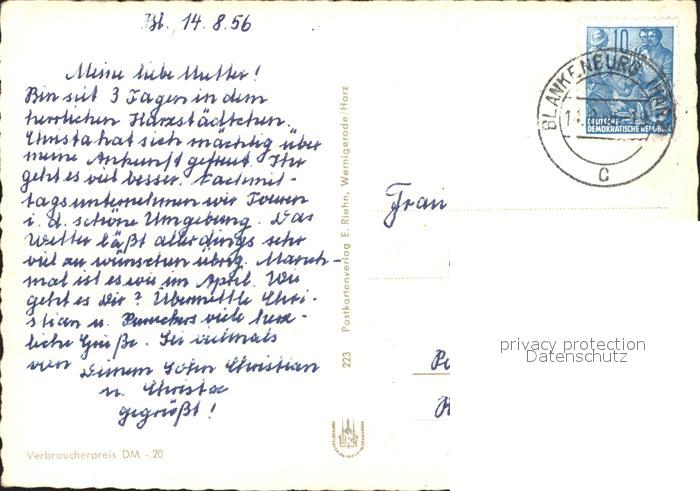 Bl. 14.8.56
Meine liebe Mutter!
Bin seit 3 Tagen in dem
herrlichen Harzstädtchen.
Christa hat sich mächtig über
meine Ankunft gefreut. Ihr
geht es viel besser. Nachmit-
tags unternehmen wir Touren
i. d. schöne Umgebung. Das
Wetter läßt allerdings sehr
viel zu wünschen übrig. Manch-
mal ist es wie im April. Wie
geht es Dir? Übermittle Chri-
stian u. viele herz-
liche Grüße. Sei vielmals
von Deinem Sohn Christian
u. Christa
gegrüßt!
Verbraucherpreis DM -,20
223 Postkartenverlag E. Riehn, Wernigerode/Harz
10
DEUTSCHE
DEMOKRATISCHE REPUBLIK
BLANKENBURG (HARZ)
C
Frau
privacy protection
Datenschutz